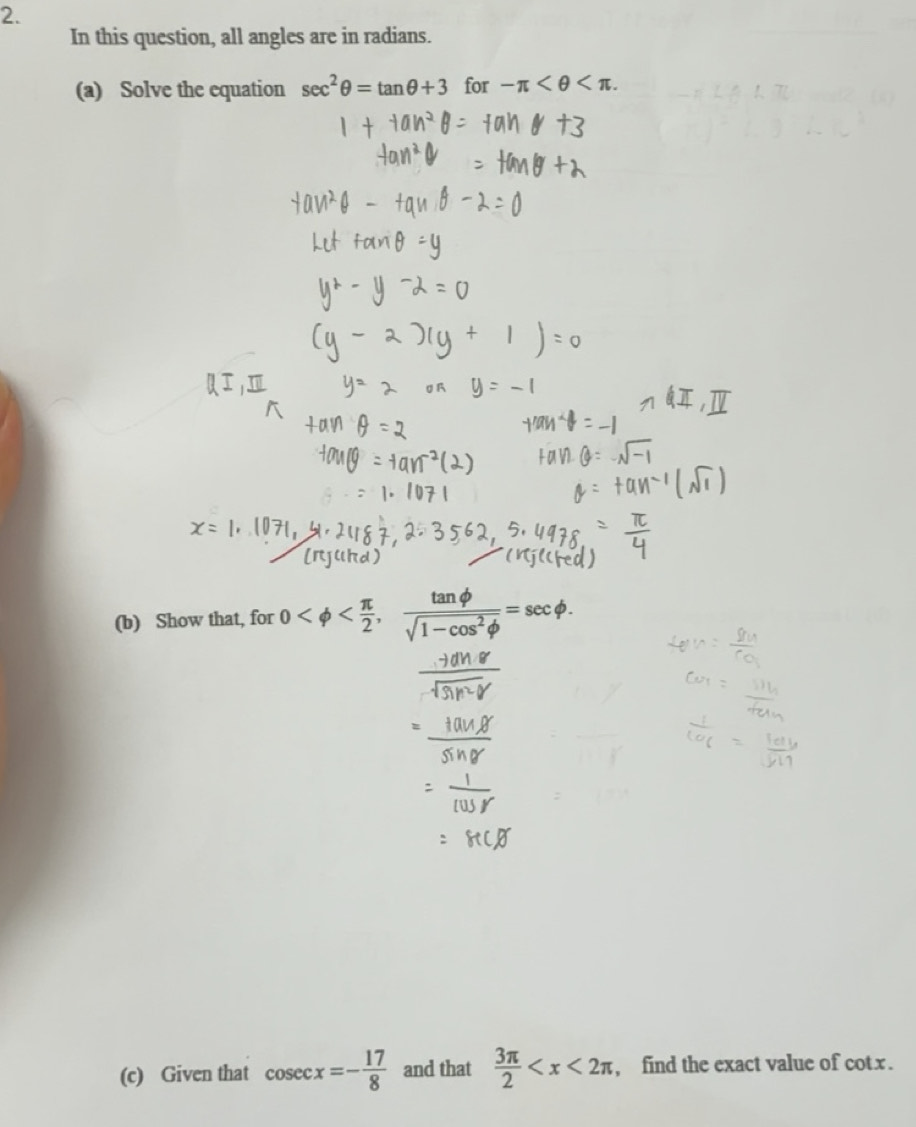 2.
In this question, all angles are in radians.
(a) Solve the equation sec²θ = tanθ+3 for −π < θ < π.
1 + tan²θ = tan θ +3
tan²θ = tanθ +2
tan²θ - tan θ -2=0
Let tanθ =y
y² - y -2 = 0
(y - 2)(y + 1) =0
QI, III y= 2 OR y = -1 QII, IV
tan θ =2 = -1
tanθ = (2) tan θ = √-1
= 1.1071 θ = tan⁻¹(√1)
x= 1.1071, 4.2487, 2.3562, 5.4978 = π/4
(rejected) (rejected)
(b) Show that, for 0 < ϕ < π/2, tanϕ/√(1−cos²ϕ) = secϕ.
tan θ/√sin²θ
= tanθ/sinθ
= 1/cosθ
= secθ
tan = sin/cos
cos = sin/tan
1/cos = tan/sin
(c) Given that cosecx = −17/8 and that 3π/2 < x < 2π, find the exact value of cotx.